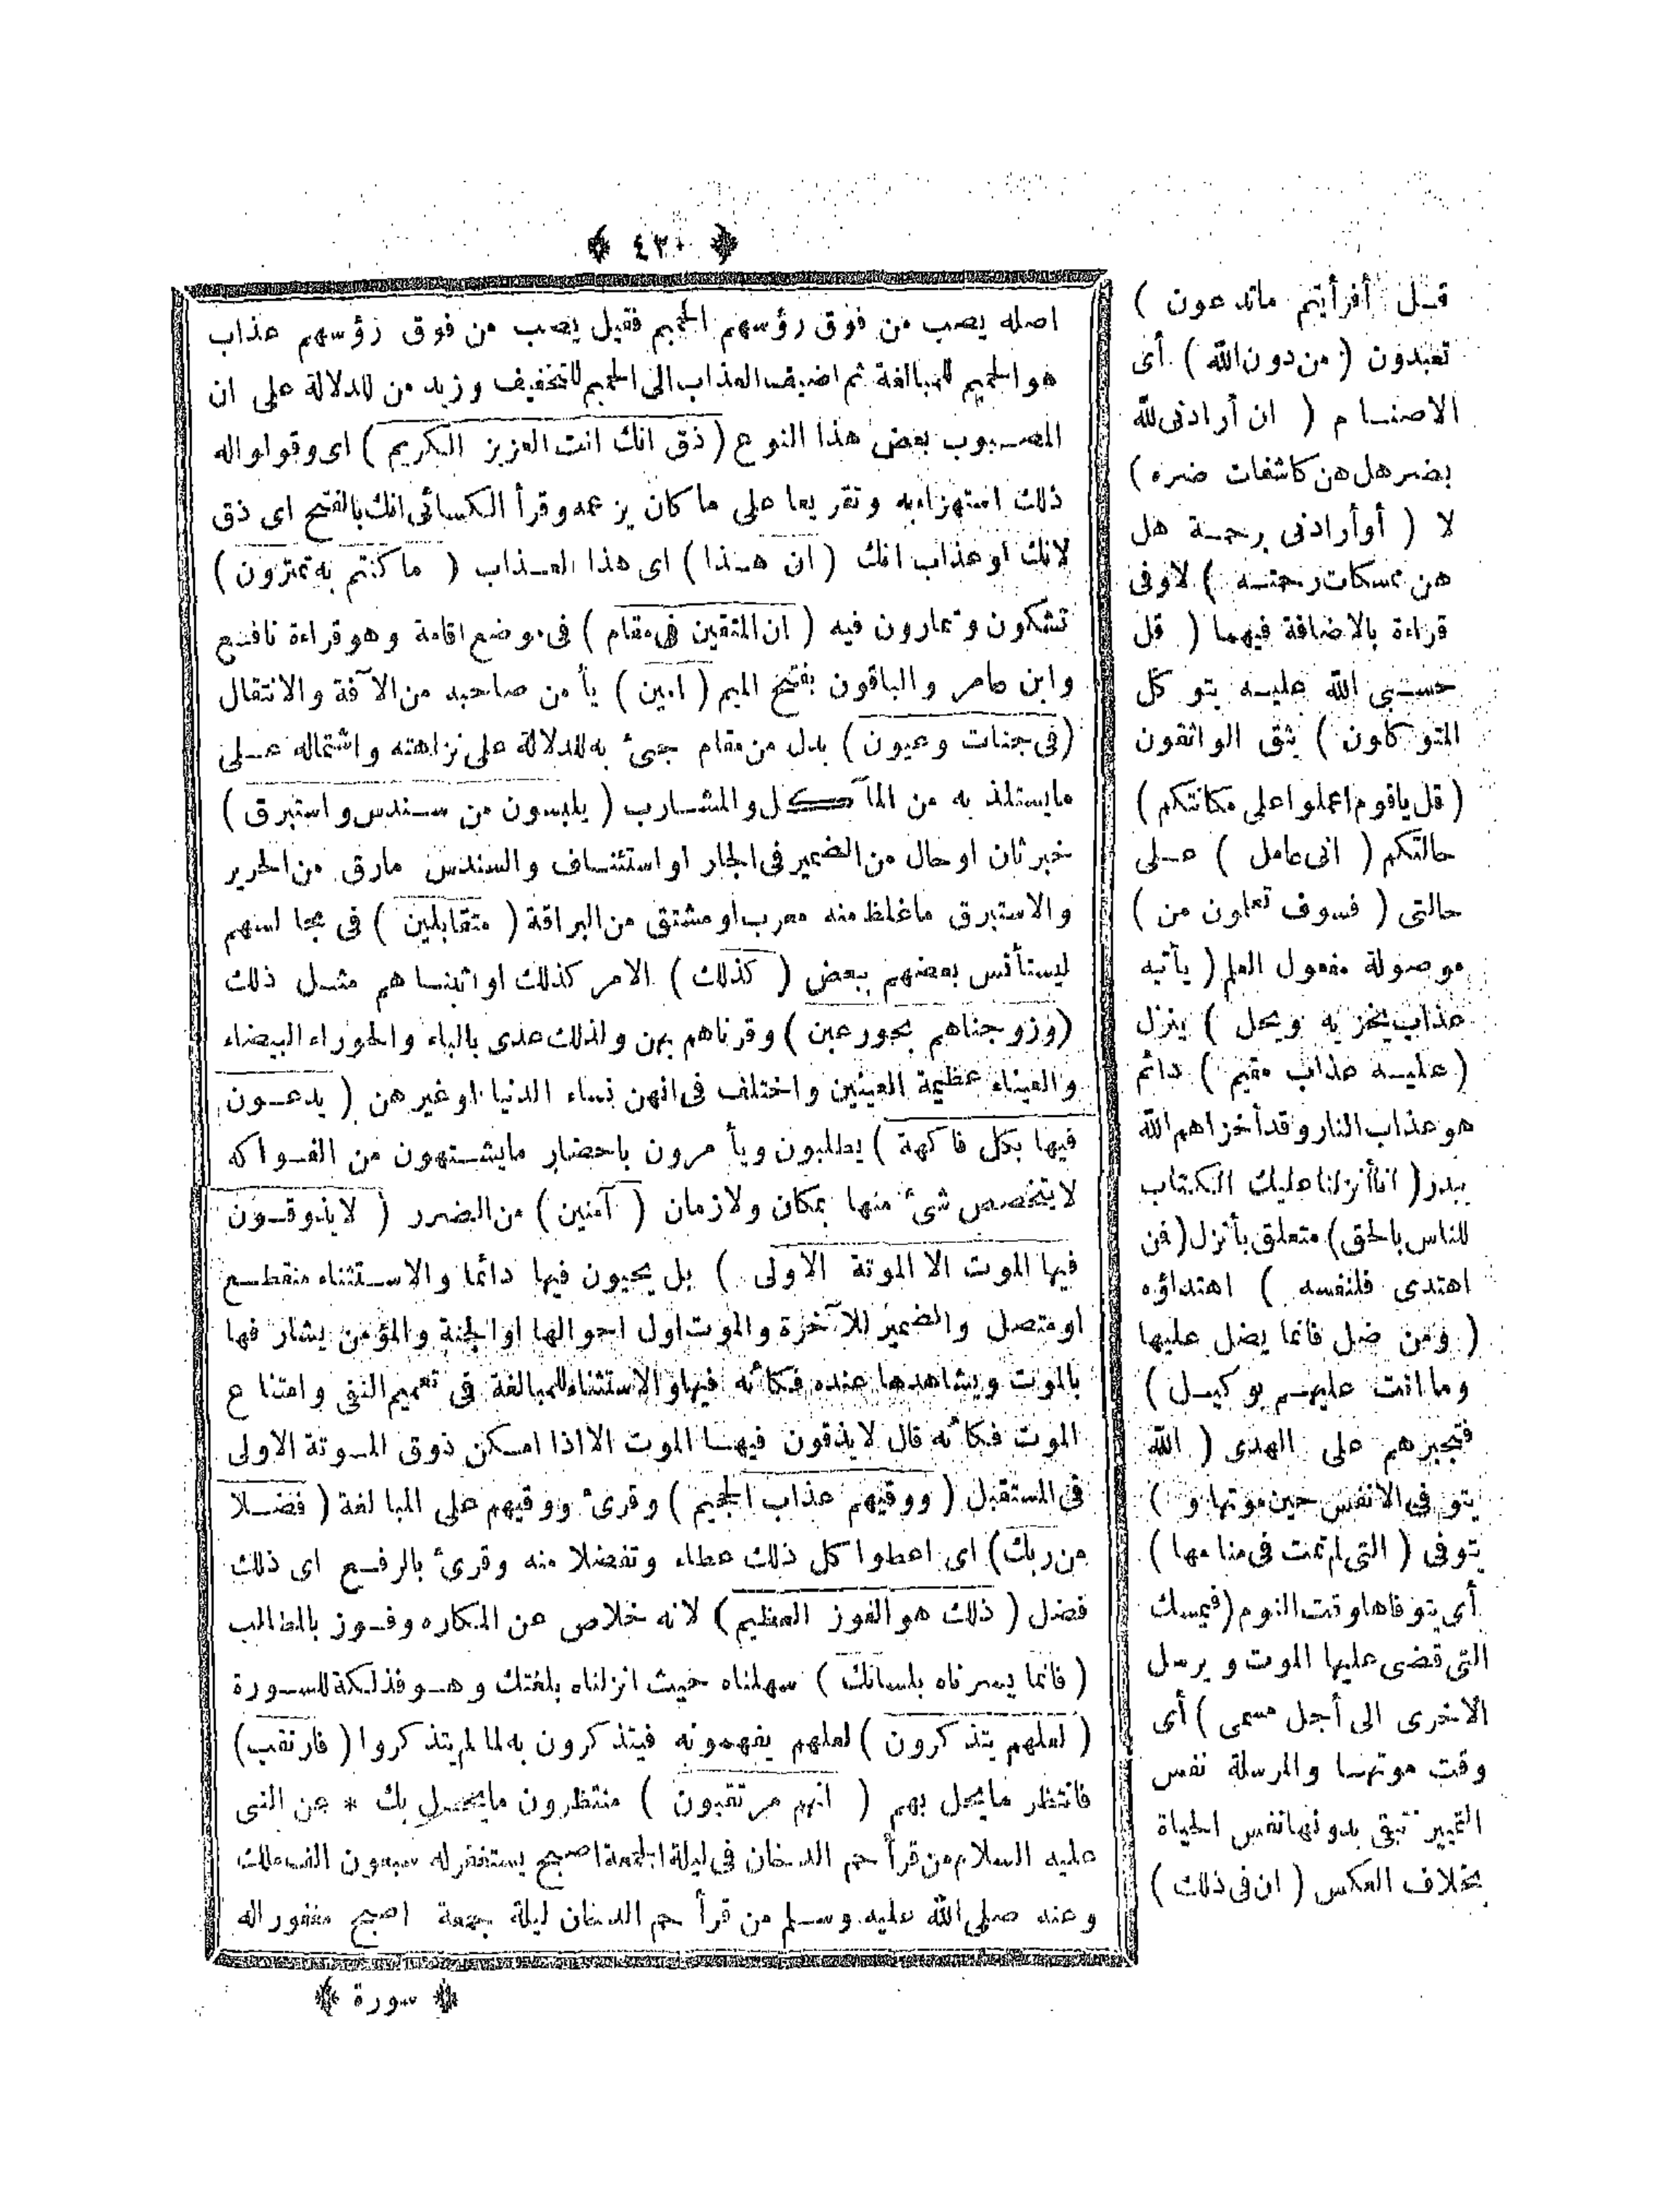 ﴿ ٤٢٠ ﴾
اصله يصب من فوق رؤسهم الحميم فقيل يصب من فوق رؤسهم عذاب
هو الحميم للمبالغة ثم اضيف العذاب الى الحميم للتخفيف وزيد من للدلالة على ان
المصبوب بعض هذا النوع ( ذق انك انت العزيز الكريم ) اى وقولوا له
ذلك استهزاء به وتقريعا على ما كان يزعمه وقرأ الكسائى انك بالفتح اى ذق
لانك او عذاب انك ( ان هذا ) اى هذا العذاب ( ما كنتم به تمترون )
تشكون وتمارون فيه ( ان المتقين فى مقام ) فى موضع اقامة وهو قراءة نافع
وابن عامر والباقون بفتح الميم ( امين ) يأ من صاحبه من الآفة والانتقال
( فى جنات وعيون ) بدل من مقام جىء به للدلالة على نزاهته واشتماله على
مايستلذ به من المآكل والمشارب ( يلبسون من سندس واستبرق )
خبر ثان او حال من الضمير فى الجار او استئناف والسندس مارق من الحرير
والاستبرق ماغلظ منه معرب او مشتق من البراقة ( متقابلين ) فى مجالسهم
ليستأنس بعضهم ببعض ( كذلك ) الامر كذلك او اثبناهم مثل ذلك
( وزوجناهم بحور عين ) وقرناهم بهن ولذلك عدى بالباء والحوراء البيضاء
والعيناء عظيمة العينين واختلف فى انهن نساء الدنيا او غيرهن ( يدعون
فيها بكل فاكهة ) يطلبون ويأ مرون باحضار مايشتهون من الفواكه
لايتخصص شىء منها بمكان ولازمان ( آمنين ) من الضرر ( لايذوقون
فيها الموت الا الموتة الاولى ) بل يحيون فيها دائما والاستثناء منقطع
او متصل والضمير للآخرة والموت اول احوالها او الجنة والمؤمن يشارفها
بالموت ويشاهدها عنده فكأنه فيها والاستثناء للمبالغة فى تعميم النفى وامتناع
الموت فكأنه قال لايذقون فيها الموت الا اذا امكن ذوق الموتة الاولى
فى المستقبل ( ووقيهم عذاب الجحيم ) وقرئ ووقيهم على المبالغة ( فضلا
من ربك ) اى اعطوا كل ذلك عطاء وتفضلا منه وقرئ بالرفع اى ذلك
فضل ( ذلك هو الفوز العظيم ) لانه خلاص عن المكاره وفوز بالمطالب
( فانما يسرناه بلسانك ) سهلناه حيث انزلناه بلغتك وهو فذلكة للسورة
( لعلهم يتذكرون ) لعلهم يفهمونه فيتذكرون به لما لم يتذكروا ( فارتقب )
فانتظر مايحل بهم ( انهم مرتقبون ) منتظرون مايحل بك * عن النبى
عليه السلام من قرأ حم الدخان فى ليلة الجمعة اصبح يستغفر له سبعون الف ملك
وعنه صلى الله عليه وسلم من قرأ حم الدخان ليلة جمعة اصبح مغفورا له
قل أفرأيتم ماتدعون )
تعبدون ( من دون الله ) أى
الاصنام ( ان أرادنى الله
بضر هل هن كاشفات ضره )
لا ( أو أرادنى برحمة هل
هن ممسكات رحمته ) لا وفى
قراءة بالاضافة فيهما ( قل
حسبى الله عليه يتوكل
المتوكلون ) يثق الواثقون
( قل ياقوم اعملوا على مكانتكم )
حالتكم ( انى عامل ) على
حالتى ( فسوف تعلمون من )
موصولة مفعول العلم ( يأتيه
عذاب يخزيه ويحل ) ينزل
( عليه عذاب مقيم ) دائم
هو عذاب النار وقد أخزاهم الله
ببدر ( انا أنزلنا عليك الكتاب
للناس بالحق ) متعلق بأنزل ( فن
اهتدى فلنفسه ) اهتداؤه
( ومن ضل فانما يضل عليها
وما انت عليهم بوكيل )
فتجبرهم على الهدى ( الله
يتوفى الانفس حين موتها و )
يتوفى ( التى لم تمت فى منامها )
أى يتوفاها وقت النوم ( فيمسك
التى قضى عليها الموت ويرسل
الاخرى الى أجل مسمى ) أى
وقت موتها والمرسلة نفس
التمييز تبقى بدونها نفس الحياة
بخلاف العكس ( ان فى ذلك )
﴿ سورة ﴾